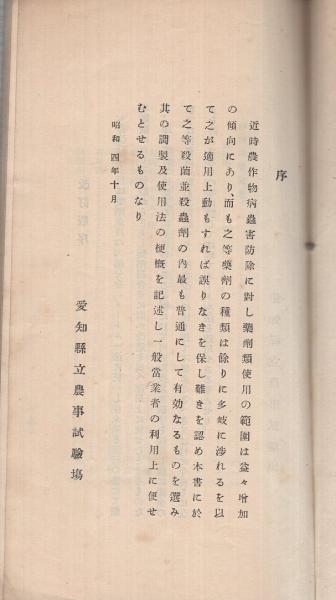 序
近時農作物病蟲害防除に對し藥劑類使用の範圍は益々增加
の傾向にあり、而も之等藥劑の種類は餘りに多岐に涉れるを以
て之が適用上動もすれば誤りなきを保し難きを認め本書に於
て之等殺菌並殺蟲劑の內最も普通にして有効なるものを選み
其の調製及使用法の梗槪を記述し一般當業者の利用上に便せ
むとせるものなり
昭和四年十月
愛知縣立農事試驗場